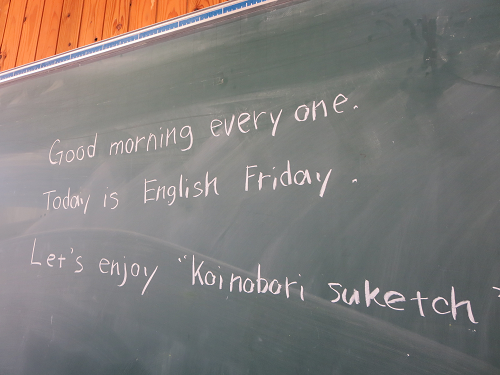 Good morning every one.
Today is English Friday.
Let's enjoy "Koinobori suketch"